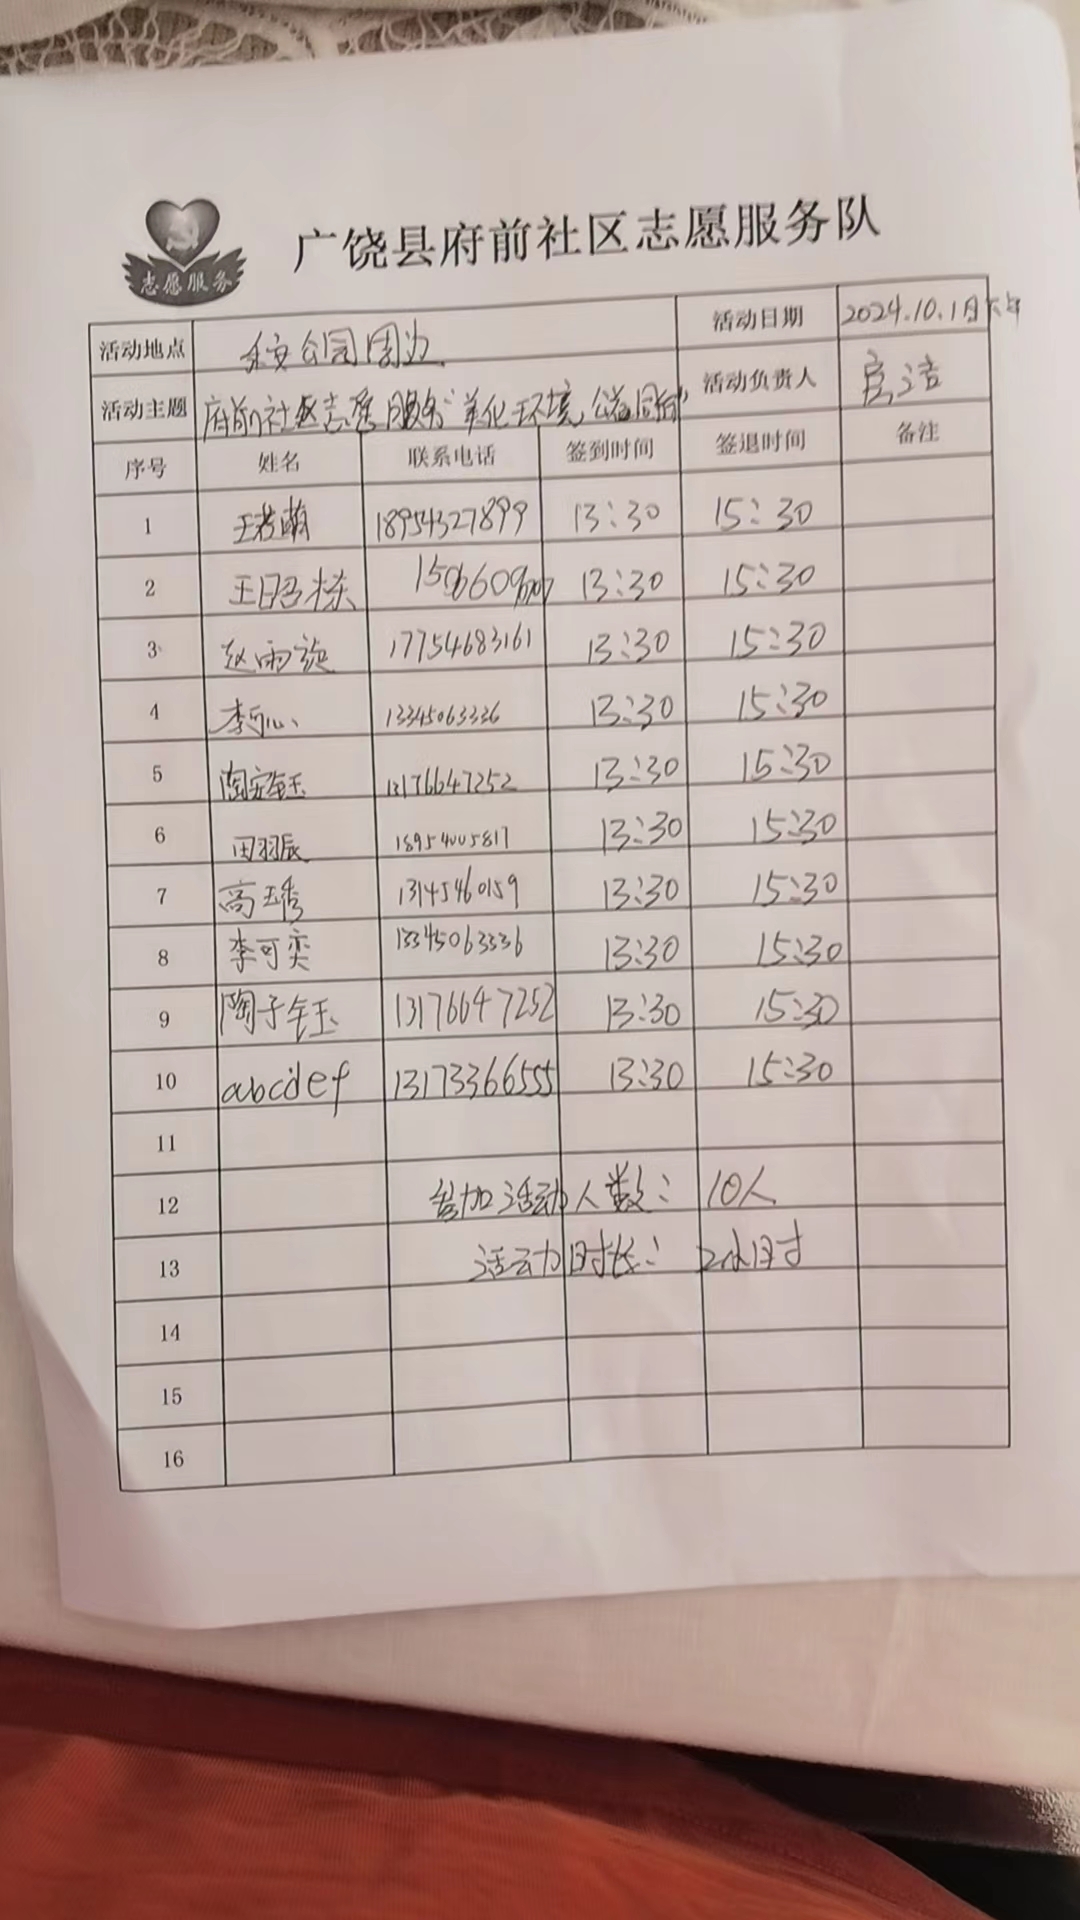 志愿服务
广饶县府前社区志愿服务队
活动地点 公园周边 活动日期 2024.10.1日下午
活动主题 府前社区志愿服务“美化环境,公益同行” 活动负责人 洁
序号 姓名 联系电话 签到时间 签退时间 备注
1 王若萌 18954327899 13:30 15:30
2 王昭栋 13:30 15:30
3 赵雨旋 17754683161 13:30 15:30
4 李可心 13345063336 13:30 15:30
5 陶安钰 13176647252 13:30 15:30
6 田羽辰 18954005817 13:30 15:30
7 高玉秀 13145460159 13:30 15:30
8 李可奕 13345063336 13:30 15:30
9 陶子钰 13176647252 13:30 15:30
10 abcdef 13173366555 13:30 15:30
11
12 参加活动人数: 10人
13 活动时长: 2小时
14
15
16